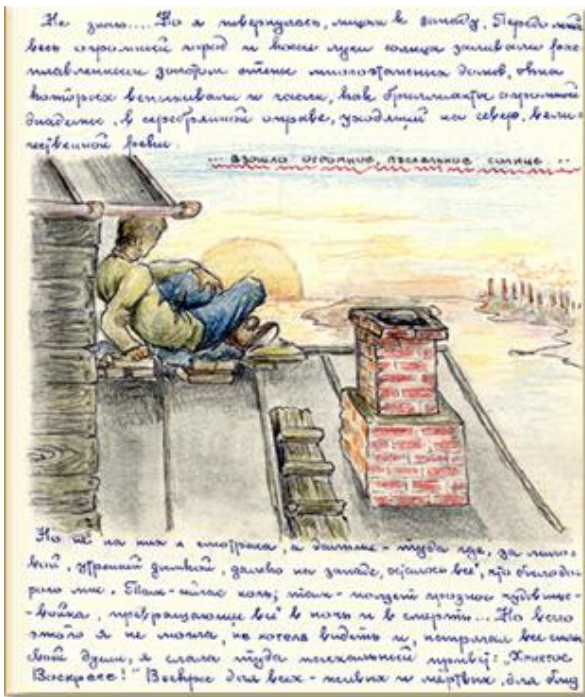 Не знаю.... Но я повернулась, лицом к западу. Передо мной
весь огромный город и косые лучи солнца заливали рас-
плавленным золотом стены многоэтажных домов, окна
которых вспыхивали и гасли, как бриллианты огромной
диадемы, в серебрянной оправе, уходящей на север, вели-
чественной реки.
... взошло огромное, пасхальное солнце...
Но не на них я смотрела, а дальше - туда где, за лило-
вой, утренней дымкой, далеко на западе, осталось всё, что было до-
рого мне. Там - сейчас ночь; там - ползет грозное чудовище-
-война, превращающее всё в ночь и в смерть... Но всего
этого я не могла, не хотела видеть и, напрягая все силы
своей души, я слала туда пасхальный привет: "Христос
Воскресе!" Воскрес для всех - живых и мертвых, для